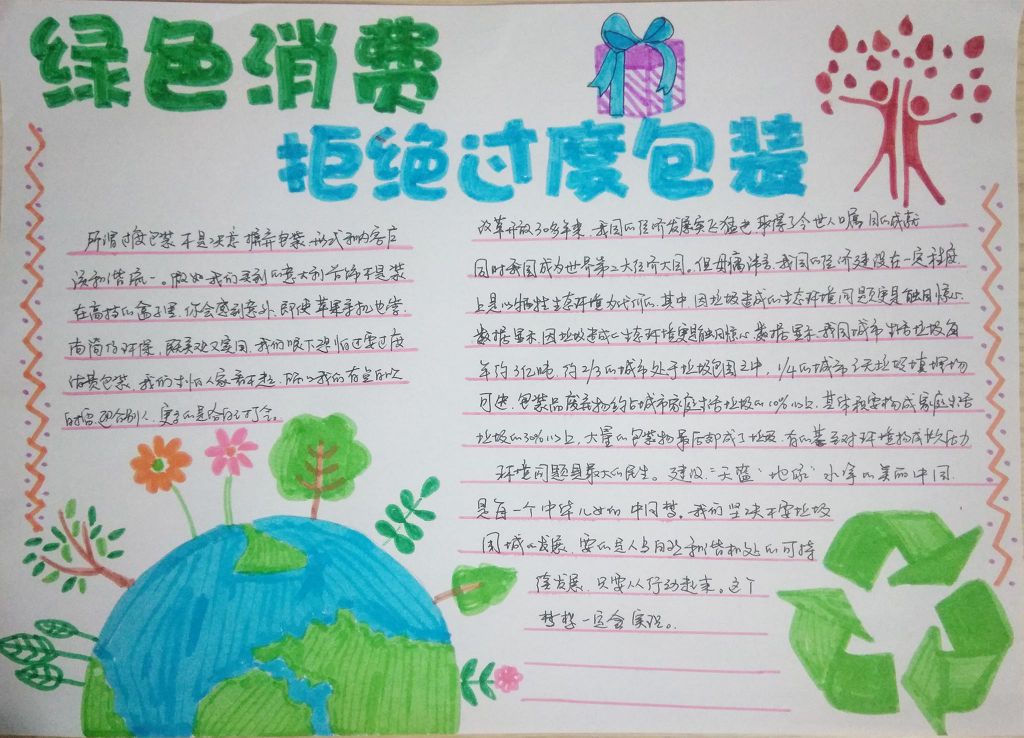 绿色消费
拒绝过度包装
所谓过度包装,不是决意摒弃包装,形式和内容应
该和谐统一。假如我们买到的意大利首饰不是装
在高档的盒子里,你会感到意外,即使苹果手机也崇
尚简约环保,既美观又实用,我们眼下恐怕还要过度
浪费包装,我们生怕人家看不起,所以我们有点的
改革开放30多年来,我国的经济发展突飞猛进,取得了令世人瞩目的成就
同时我国成为世界第二大经济大国。但毋庸讳言,我国的经济建设在一定程度
上是以牺牲生态环境为代价的,其中因垃圾造成的生态环境问题更是触目惊心
数据显示,因垃圾造成的生态环境更是触目惊心,数据显示,我国城市生活垃圾每
年约3亿吨,约2/3的城市处于垃圾包围之中,1/4的城市已无垃圾填埋场
可建,包装品废弃物约占城市家庭生活垃圾的10%以上,其体积要构成家庭生活
垃圾的30%以上,大量的包装物最后却成了垃圾,有的甚至对环境构成较大压力
环境问题是最大的民生。建设“天蓝”地绿”水净的美丽中国
是每一个中华儿女的中国梦。我们坚决不要垃圾
围城的发展,要的是人与自然和谐相处的可持
续发展,只要从行动起来。这个
梦想一定会实现。